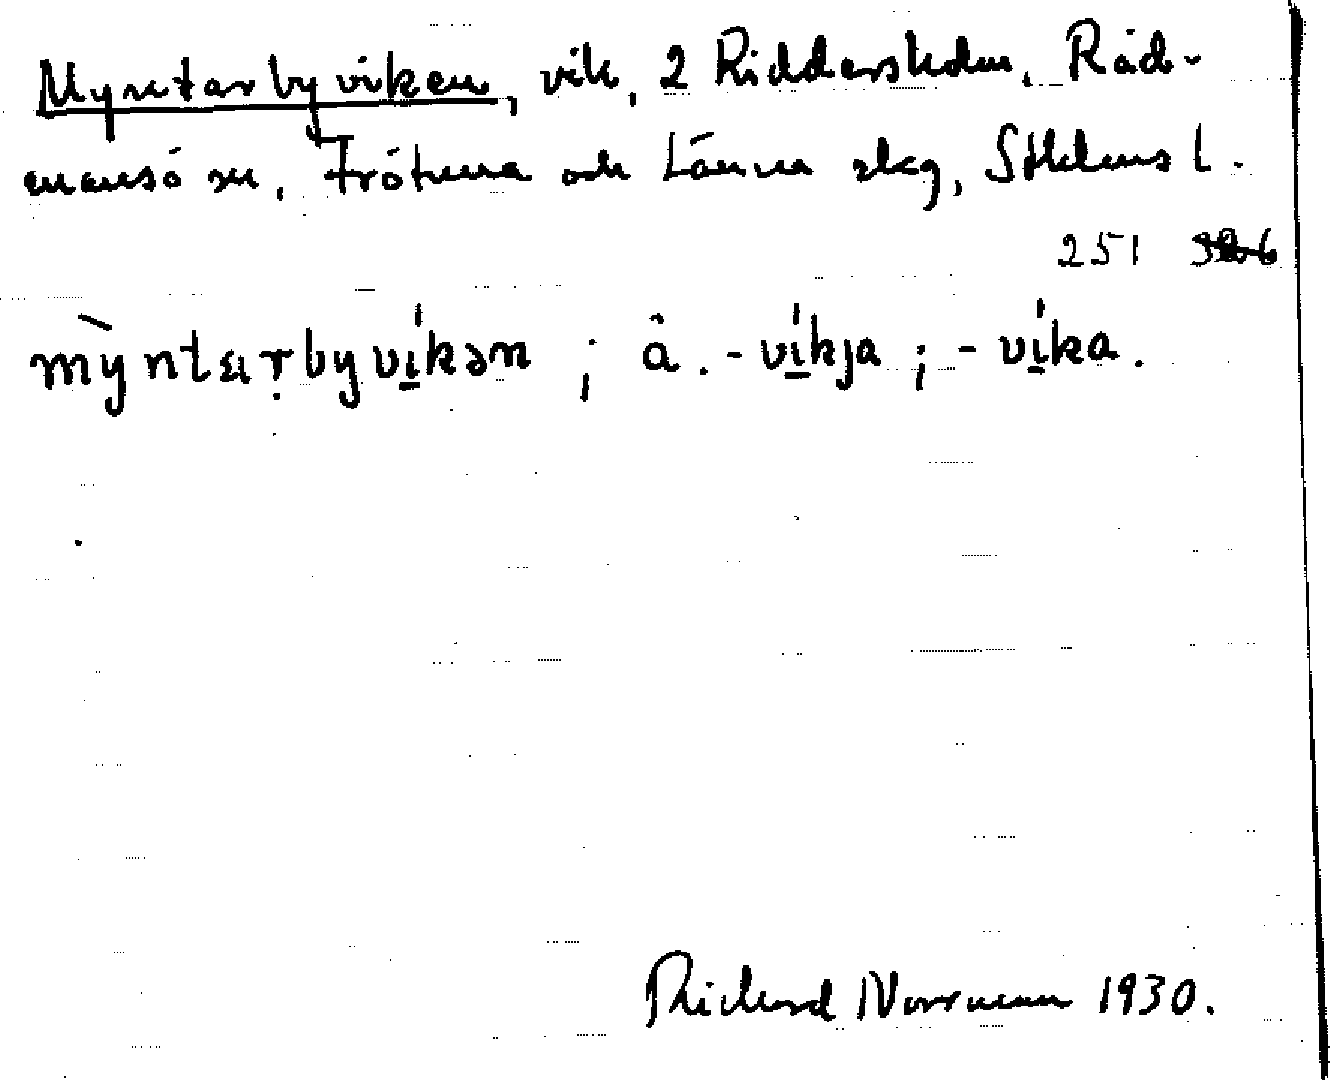 Myntarbyviken, vik, 2 Riddersholm, Råd-
mansö sn, Frötuna och Länna skg, Sthlms l.
251
mỳntaṛbyvíkən ; â. -víkja ; -víka.
Richard Norrman 1930.